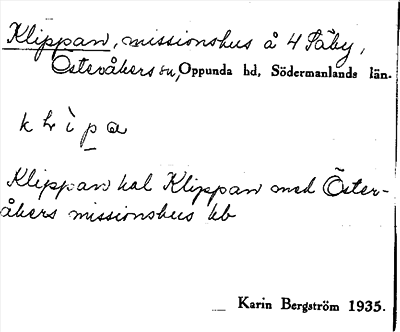 Klippan, missionshus å 4 Täby,
Österåkers sn, Oppunda hd, Södermanlands län.
Klippan kal Klippan med Öster-
åkers missionshus kb
Karin Bergström 1935.